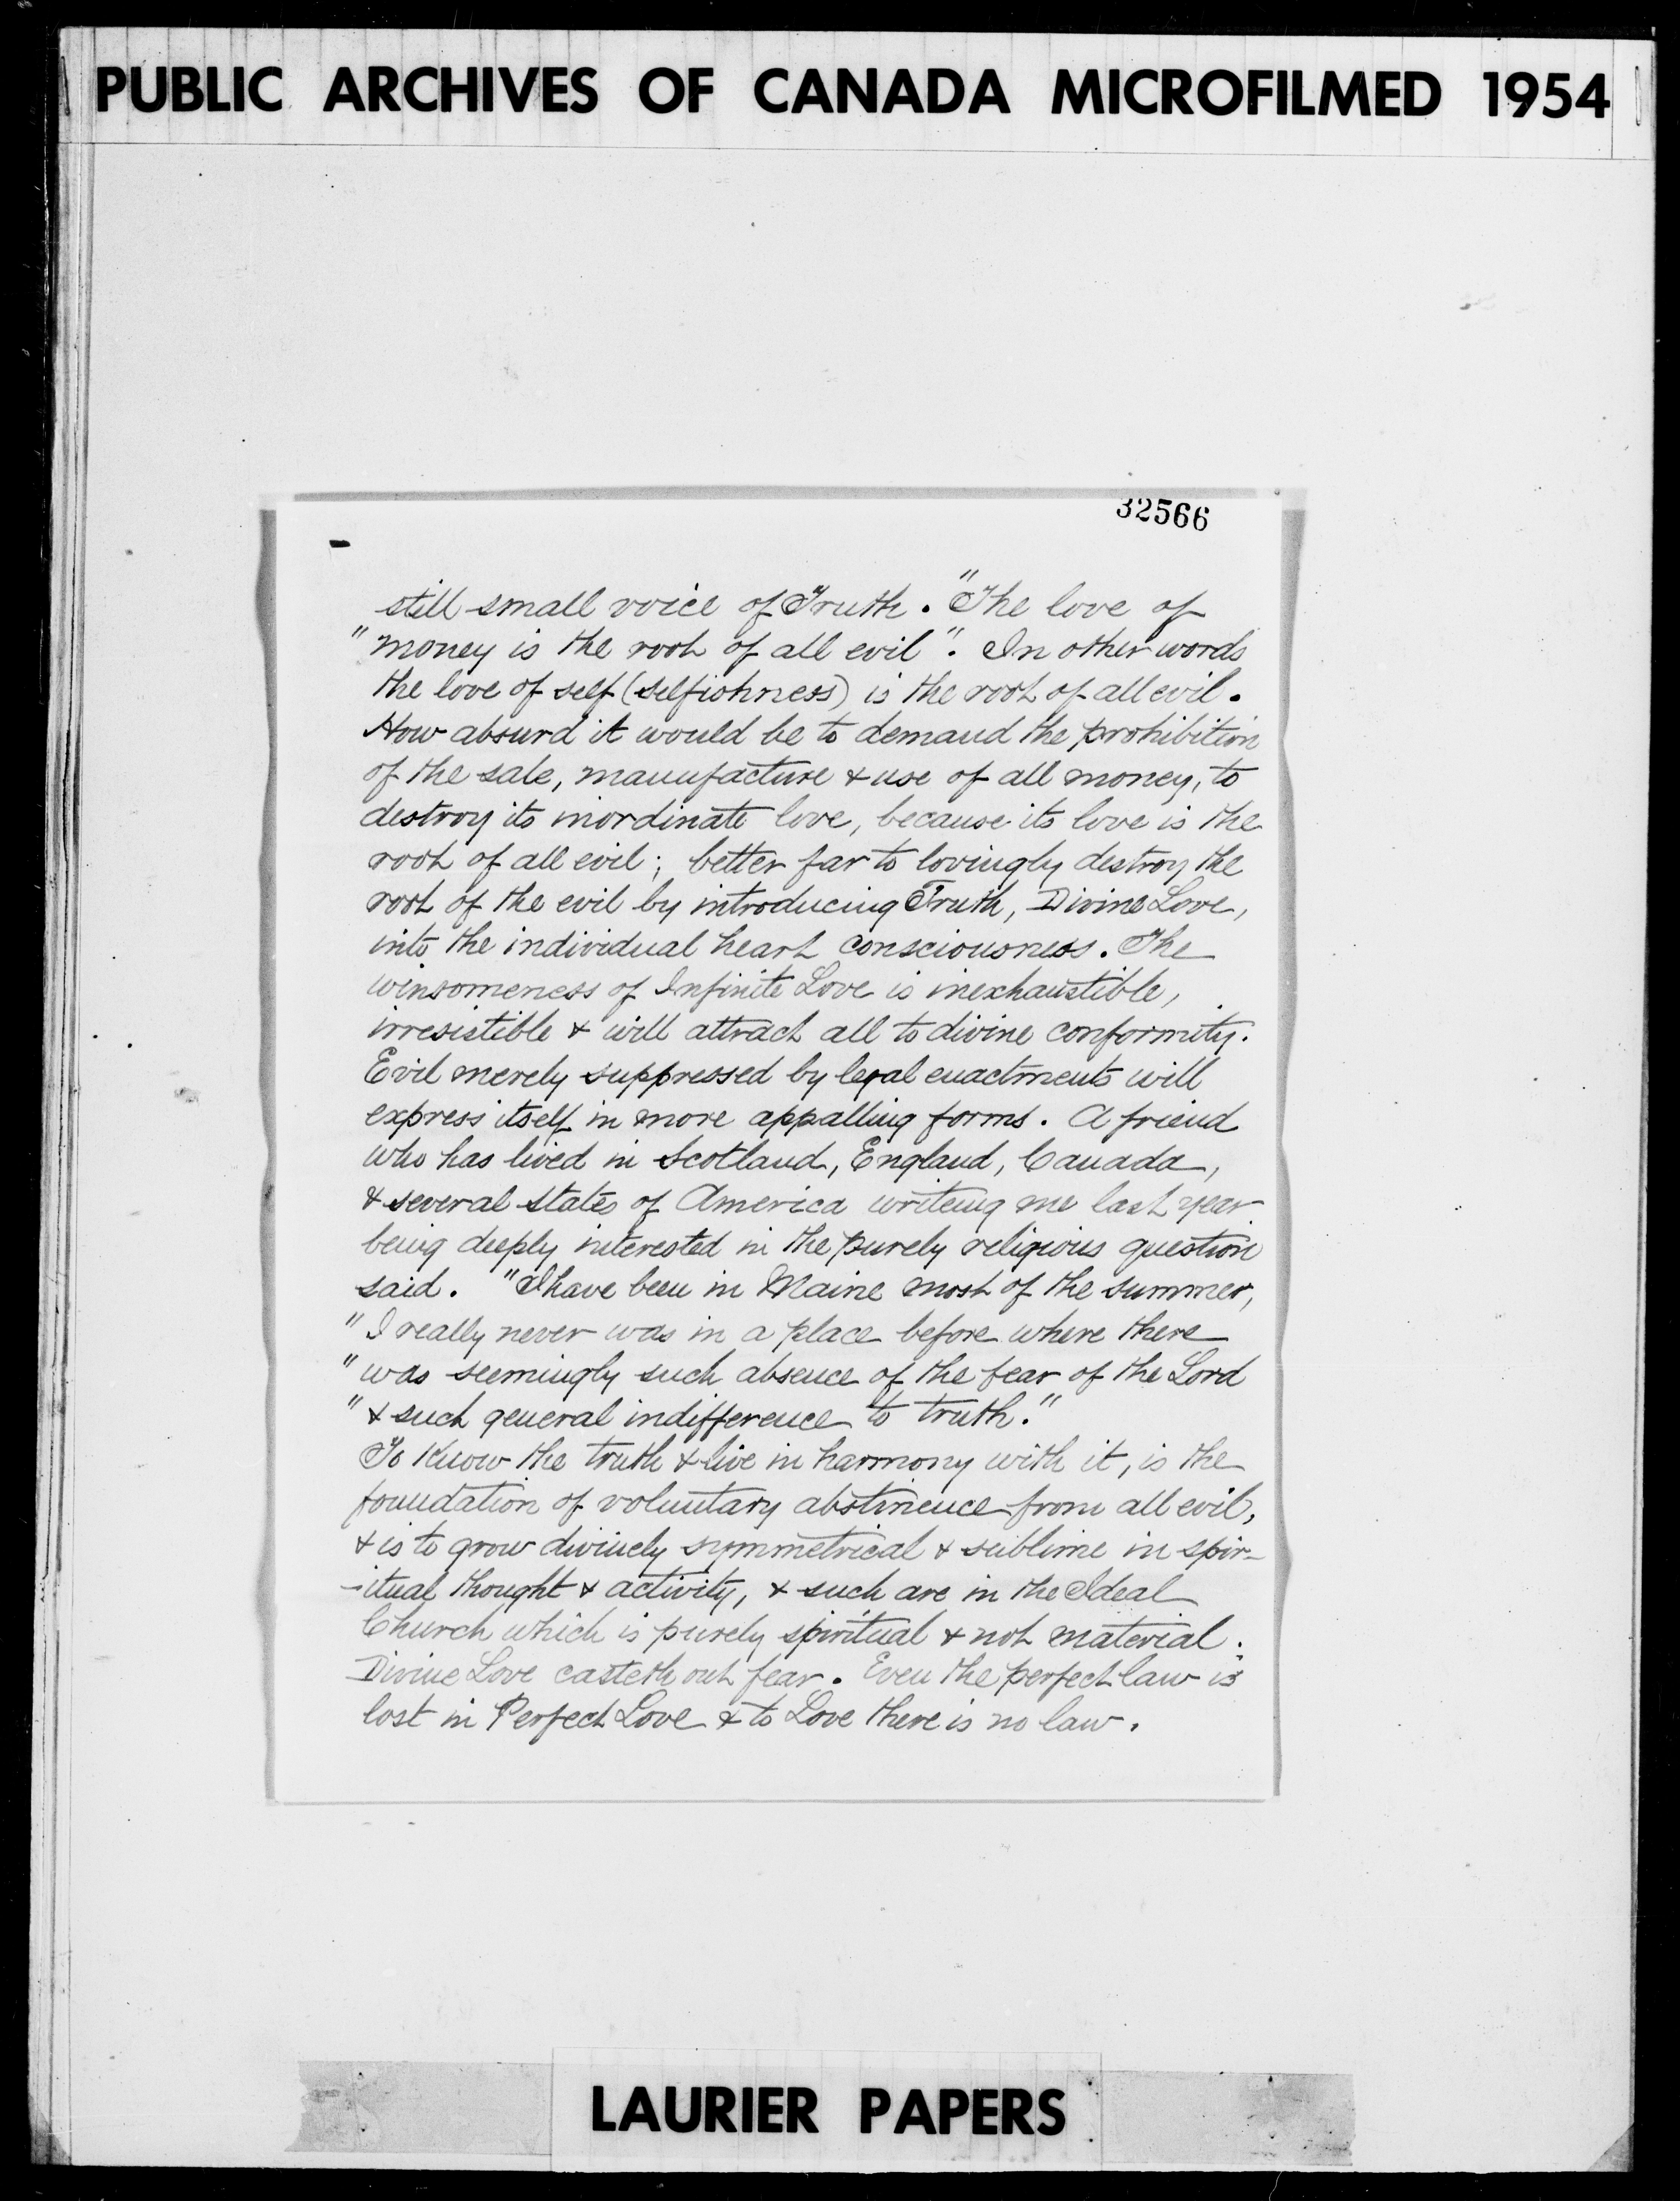 PUBLIC ARCHIVES OF CANADA MICROFILMED 1954
32566
still small voice of Truth. "The love of
"money is the root of all evil". In other words
the love of self (selfishness) is the root of all evil.
How absurd it would be to demand the prohibition
of the sale, manufacture & use of all money, to
destroy its inordinate love, because its love is the
root of all evil; better far to lovingly destroy the
root of the evil by introducing Truth, Divine Love,
into the individual heart consciousness. The
winsomeness of Infinite Love is inexhaustible,
irresistible & will attract all to divine conformity.
Evil merely suppressed by legal enactments will
express itself in more appalling forms. A friend
who has lived in Scotland, England, Canada,
& several states of America writing me last year
being deeply interested in the purely religious question
said. "I have been in Maine most of the summer,
"I really never was in a place before where there
"was seemingly such absence of the fear of the Lord
"& such general indifference to truth."
To Know the truth & live in harmony with it, is the
foundation of voluntary abstinence from all evil,
& is to grow divinely symmetrical & sublime in spir-
-itual thought & activity, & such are in the Ideal
Church which is purely spiritual & not material.
Divine Love casteth out fear. Even the perfect law is
lost in Perfect Love & to Love there is no law.
LAURIER PAPERS